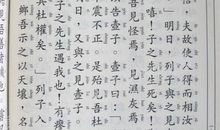 夫故使人得而相汝
」明日,列子與之見
嘻!子之先生死矣!
吾見怪焉,見濕灰焉
告壺子。壺子曰:「
震不正。是殆見吾杜
又與之見壺子。
子之先生遇我也!有瘳
其杜權矣。」列子入
鄉吾示之以天壤,名